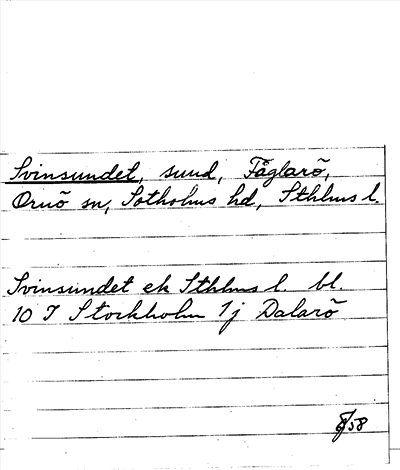 Svinsundet, sund, Fåglarö,
Ornö sn, Sotholms hd, Sthlms l.
Svinsundet ek Sthlms l. bl.
10 I Stockholm 1j Dalarö
58